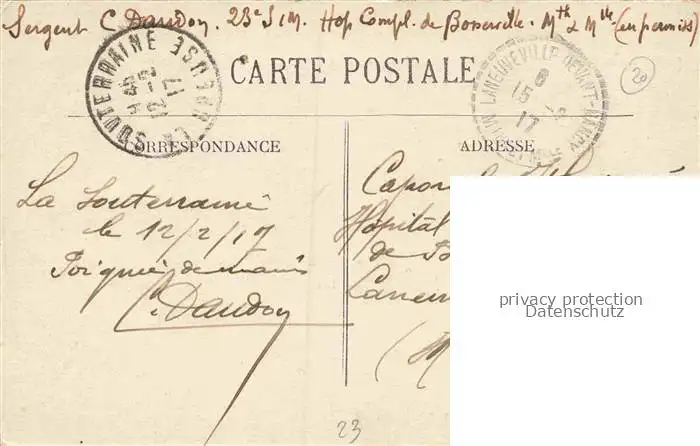 Sergent C. Daudon. 23e S.I.M. Hop Compl. de Bosserville. Mth & Mlle (en permiss)
CARTE POSTALE
LA SOUTERRAINE CREUSE
12-2
17
LANEUVEVILLE-DEVANT-NANCY
15
17
20
CORRESPONDANCE
ADRESSE
La Souterraine
le 12/2/17
Poignée de mains
C. Daudon
Capor
Hôpital
de Bo
Laneu
(M
privacy protection
Datenschutz
23